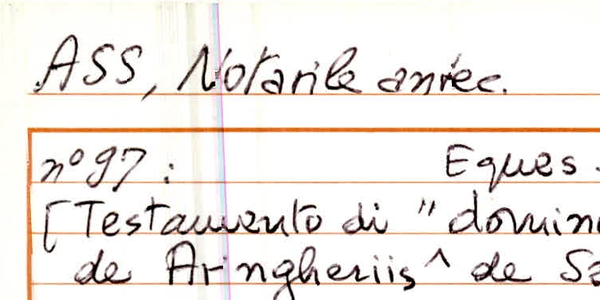 ASS, Notarile antec.
nº 97: Eques.
[Testamento di "domin
de Aringheriis ^ de S